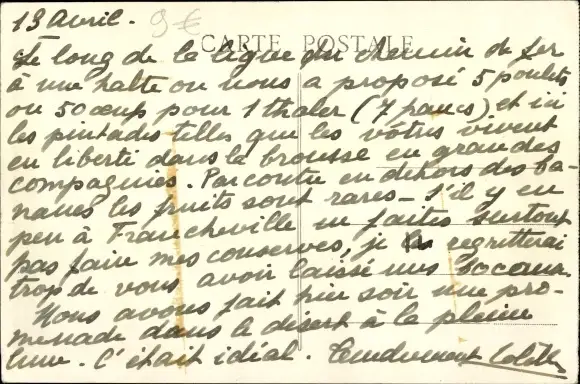 13 avril.
9€
CARTE POSTALE
Le long de la ligne du chemin de fer
à une halte on nous a proposé 5 poulets
ou 50 œufs pour 1 thaler (7 francs) et ici
les pintades telles que les vôtres vivent
en liberté dans la brousse en grandes
compagnies. Par contre en dehors des ba-
nanes les fruits sont rares – s'il y en
peu à Francheville ne faites surtout
pas faire mes conserves, je regretterai
trop de vous avoir laissé mes
Nous avons fait hier soir une pro-
menade dans le désert à la pleine
lune. C'était idéal. Tendrement